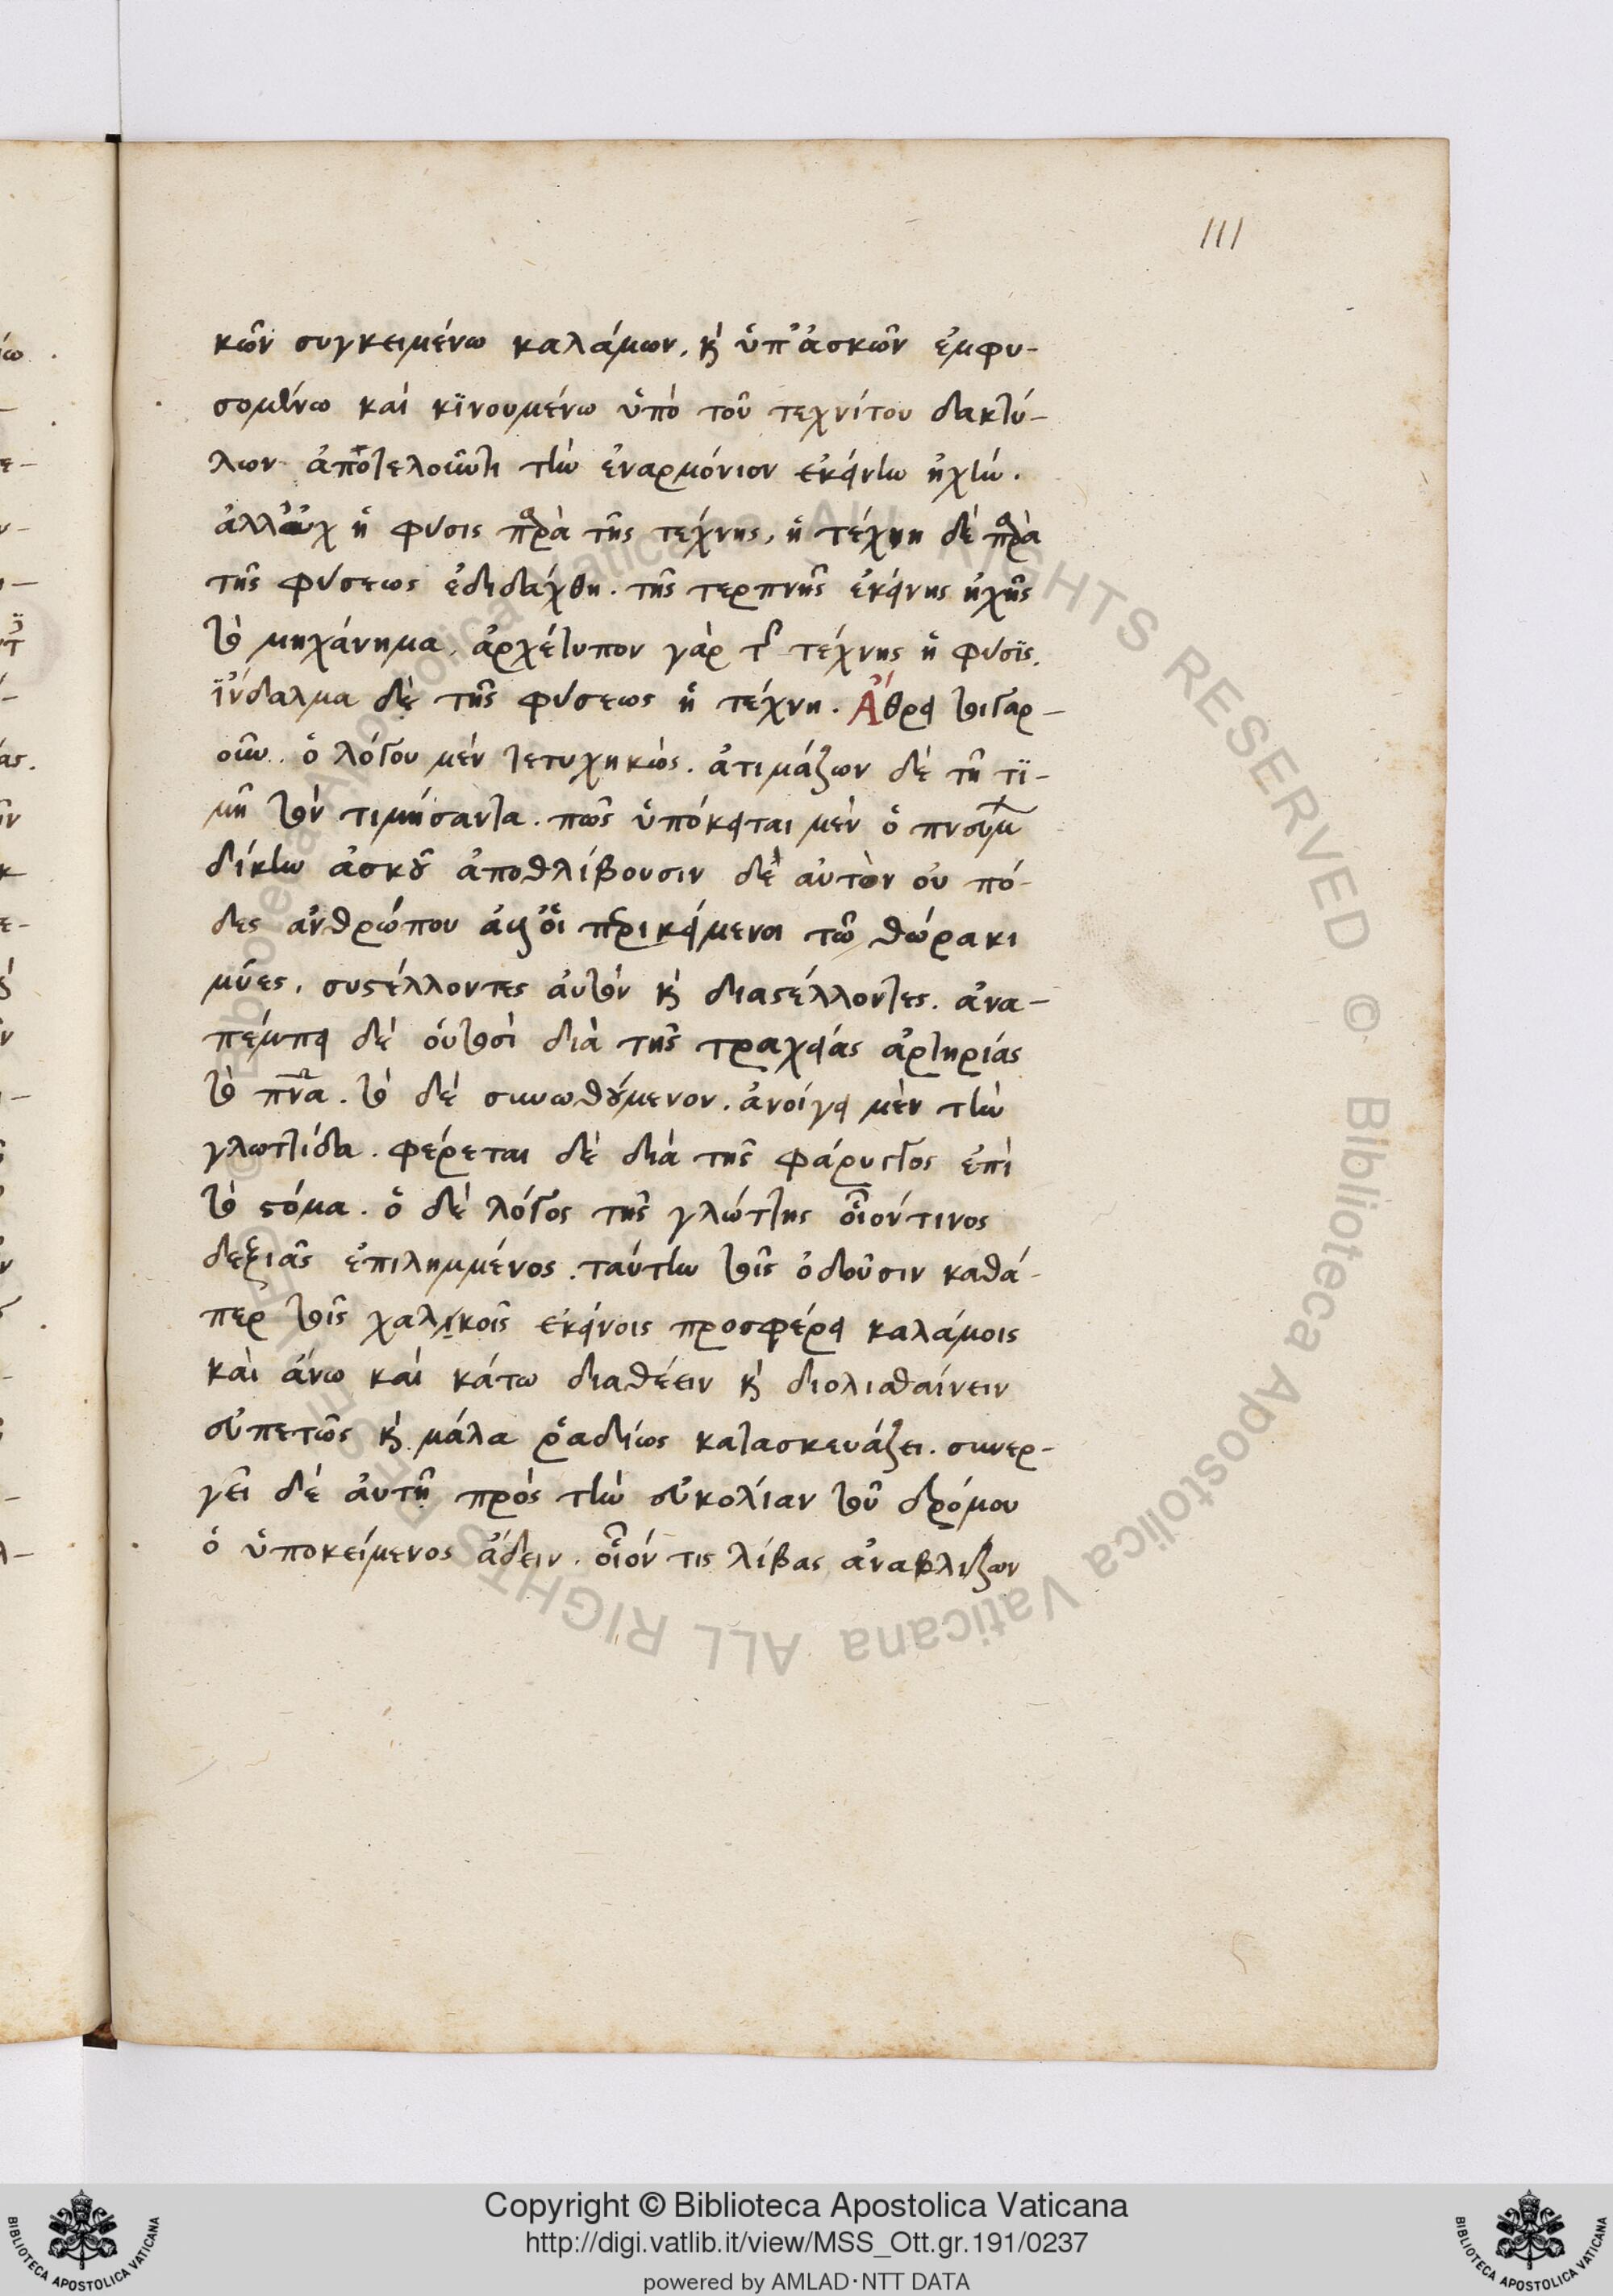 111
κῶν συγκειμένω καλάμων. κ̀ ὑπ' ἀσκῶν ἐμφυ-
σομένω καὶ κϊνουμένω ὑπὸ τοῦ τεχνίτου δακτύ-
λων ἀποτελοῦντι τὴν ἐναρμόνιον ἐκείνην ἠχήν.
ἀλλ' οὐχ ἡ φύσις πρὰ τῆς τέχνης, ἡ τέχνη δὲ πρὰ
τῆς φύσεως ἐδιδάχθη. τῆς τερπνῆς ἐκείνης ἠχῆς
τὸ μηχάνημα. ἀρχέτυπον γὰρ τ τέχνης ἡ φύσϊς.
ἴνδαλμα δὲ τῆς φύσεως ἡ τέχνη. Ἄθρει τοιγαρ-
οῦν. ὁ λόγου μὲν τετυχηκὼς. ἀτιμάζων δὲ τῆ τϊ-
μῆ τὸν τιμήσαντα. πῶς ὑπόκειται μὲν ὁ πνεύμ
δίκην ἀσκοῦ ἀποθλίβουσιν δὲ αὐτὸν οὐ πό-
δες ἀνθρώπου ἀλλ' οἱ περικείμενοι τῶ θώρακι
μύες. συστέλλοντες αὐτὸν κ̀ διαστέλλοντες. ἀνα-
πέμπει δὲ οὑτοσὶ διὰ τῆς τραχείας ἀρτηρίας
τὸ πνα. τὸ δὲ συνωθούμενον. ἀνοίγει μὲν τὴν
γλωττίδα. φέρεται δὲ διὰ τῆς φάρυγγος ἐπὶ
τὸ στόμα. ὁ δὲ λόγος τῆς γλώττης οἷόν τινος
δεξιᾶς ἐπιλημμένος. ταύτην τοῖς ὀδοῦσιν καθά-
περ τοῖς χαλκοῖς ἐκείνοις προσφέρει καλάμοις
καὶ ἄνω καὶ κάτω διαθέειν κ̀ διολισθαίνειν
εὐπετῶς κ̀ μάλα ῥαδίως κατασκευάζει. συνερ-
γεῖ δὲ αὐτῆ πρὸς τὴν εὐκολίαν τοῦ δρόμου
ὁ ὑποκείμενος ἄδειν. οἷόν τις λίβας ἀναβλύζων
Copyright © Biblioteca Apostolica Vaticana
http://digi.vatlib.it/view/MSS_Ott.gr.191/0237
powered by AMLAD·NTT DATA
BIBLIOTECA APOSTOLICA VATICANA
BIBLIOTECA APOSTOLICA VATICANA